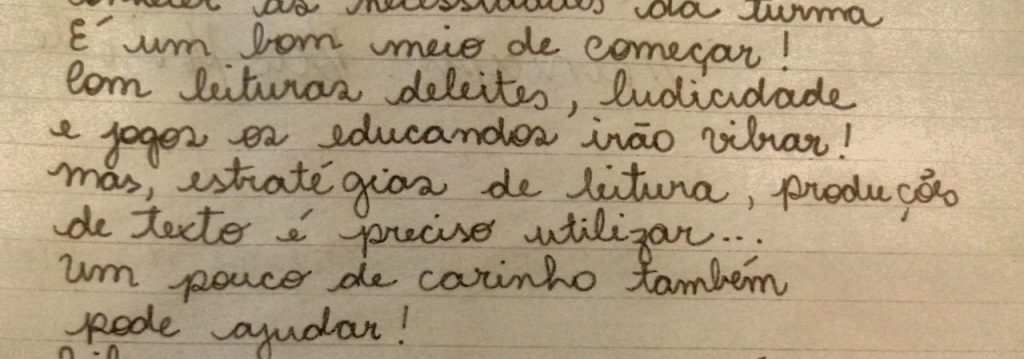 conhecer as necessidades da turma
É um bom meio de começar!
Com leituras deleites, ludicidade
e jogos os educandos irão vibrar!
mas, estratégias de leitura, produções
de texto é preciso utilizar...
Um pouco de carinho também
pode ajudar!